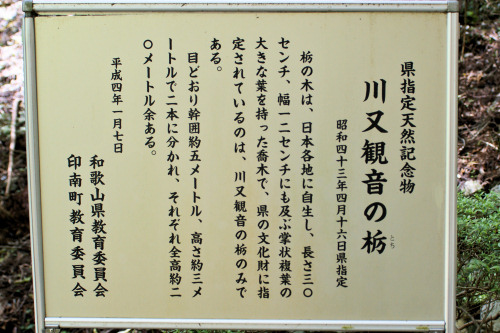 県指定天然記念物
川又観音の栃
とち
昭和四十三年四月十六日県指定
栃の木は、日本各地に自生し、長さ三〇
センチ、幅一二センチにも及ぶ掌状複葉の
大きな葉を持った喬木で、県の文化財に指
定されているのは、川又観音の栃のみで
ある。
目どおり幹囲約五メートル、高さ約三メ
ートルで二本に分かれ、それぞれ全高約二
〇メートル余ある。
平成四年一月七日
和歌山県教育委員会
印南町教育委員会